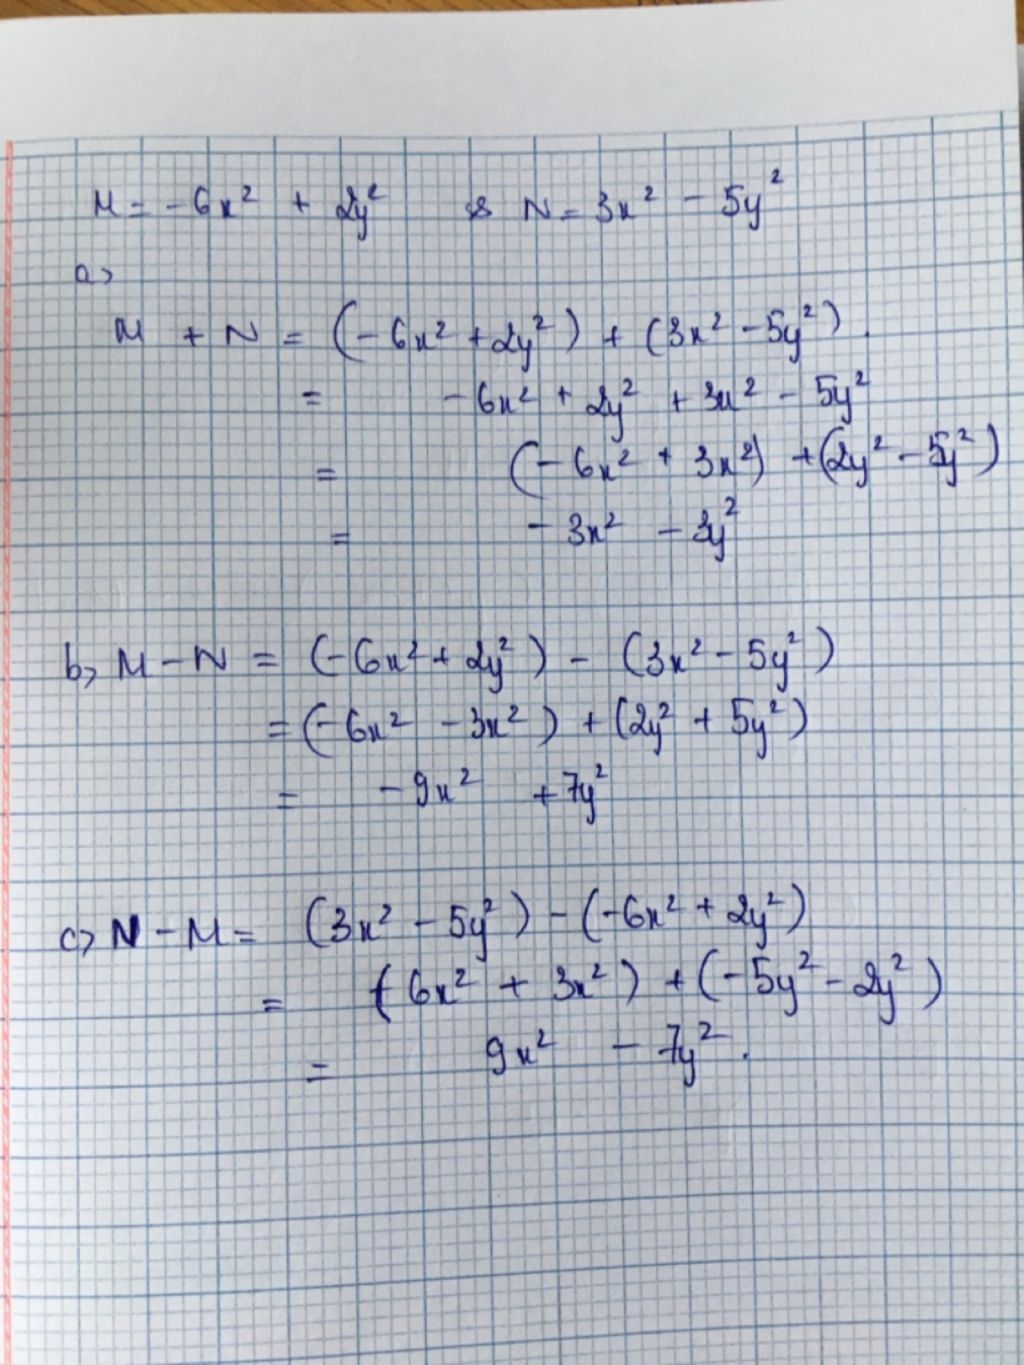 M = -6x² + 2y² & N = 3x² - 5y²
a>
M + N = (-6x² + 2y²) + (3x² - 5y²).
= -6x² + 2y² + 3x² - 5y²
= (-6x² + 3x²) + (2y² - 5y²)
= -3x² - 3y²
b> M - N = (-6x² + 2y²) - (3x² - 5y²)
= (-6x² - 3x²) + (2y² + 5y²)
= -9x² + 7y²
c> N - M = (3x² - 5y²) - (-6x² + 2y²)
= (6x² + 3x²) + (-5y² - 2y²)
= 9x² - 7y².